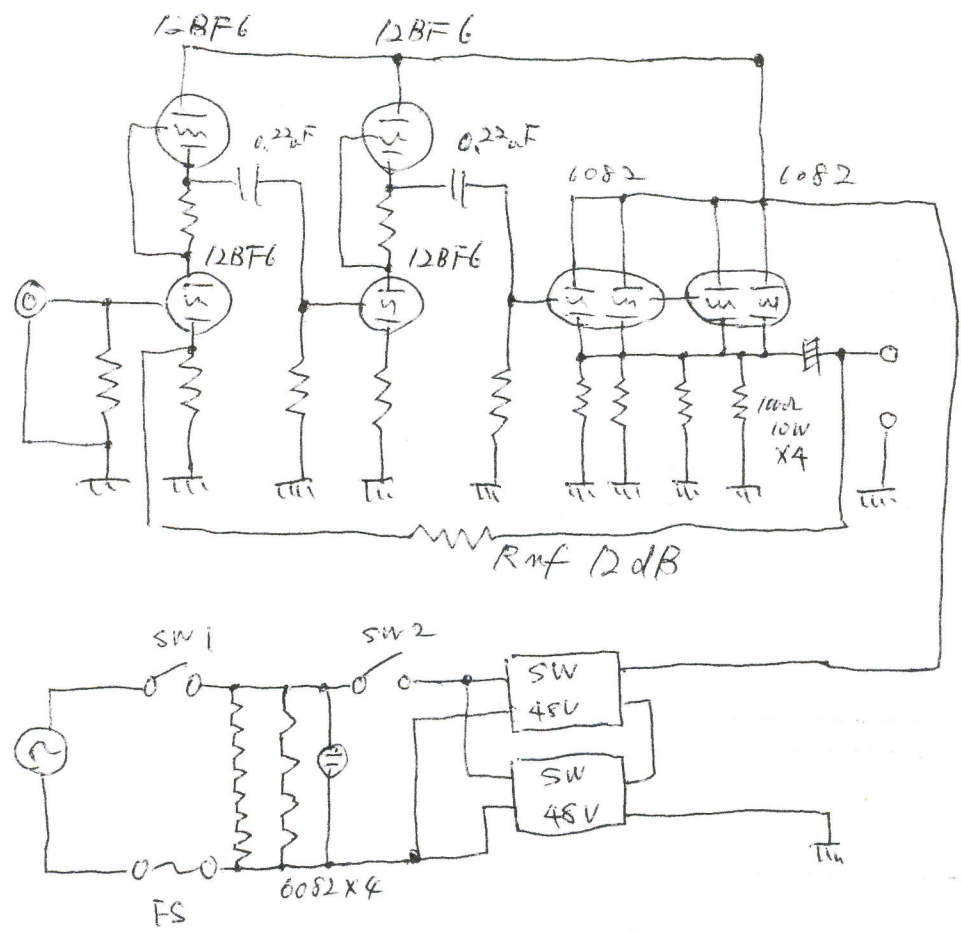 12BF6
12BF6
0.22uF
0.22uF
6082
6082
12BF6
12BF6
100Ω
10W
×4
Rnf 12dB
SW1
SW2
SW
48V
SW
48V
6082×4
FS